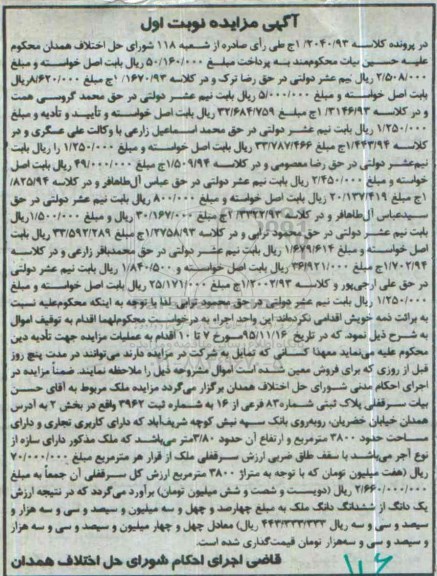 آگهی مزایده نوبت اول
در پرونده کلاسه ۱/۲۰۴۰/۹۳ج طی رأی صادره از شعبه ۱۱۸ شورای حل اختلاف همدان محکوم
علیه حسین بیات محکومند به پرداخت مبلغ ۵۰/۱۶۰/۰۰۰ ریال بابت اصل خواسته و مبلغ
۲/۵۰۸/۰۰۰ ریال نیم عشر دولتی در حق رضا ترک و در کلاسه ۱/۱۶۷۰/۹۳ج مبلغ ۸/۶۲۰/۰۰۰ریال
بابت اصل خواسته و مبلغ ۵/۰۰۰/۰۰۰ ریال بابت نیم عشر دولتی در حق محمد گروسی همت
و در کلاسه ۱/۳۱۴۶/۹۳ج مبلغ ۳۲/۶۸۴/۷۵۹ ریال بابت اصل خواسته و تأیید و تأدیه و مبلغ
۱/۲۵۰/۰۰۰ ریال بابت نیم عشر دولتی در حق محمد اسماعیل زارعی با وکالت علی عسگری و در
کلاسه ۱/۴۴۳/۹۴ج مبلغ ۳۳/۷۸۷/۴۶۶ ریال بابت اصل خواسته و مبلغ ۱/۲۵۰/۰۰۰ را ریال بابت
نیم‌عشر دولتی در حق رضا معصومی و در کلاسه ۱/۵۰۹/۹۴ج مبلغ ۴۹/۰۰۰/۰۰۰ ریال بابت اصل
خواسته و مبلغ ۲/۴۵۰/۰۰۰ ریال بابت نیم عشر دولتی در حق عباس آل‌طاهافر و در کلاسه ۸۲۵/۹۴/
۱ج مبلغ ۲۰/۱۳۷/۴۱۹ ریال بابت اصل خواسته و مبلغ ۸۰۰/۰۰۰ ریال بابت نیم عشر دولتی در حق
سیدعباس آل‌طاهافر و در کلاسه ۱/۳۳۲۲/۹۳ج مبلغ ۳۰/۱۶۷/۰۰۰ ریال و مبلغ ۱/۵۰۰/۰۰۰ریال
بابت نیم عشر دولتی در حق محمود ترابی و در کلاسه ۱/۲۷۵۸/۹۳ج مبلغ ۳۳/۵۹۲/۲۸۹ ریال بابت
اصل خواسته و مبلغ ۱/۶۷۹/۶۱۴ ریال بابت نیم عشر دولتی در حق محمدباقر زارعی و در کلاسه
۱/۷۰۲/۹۴ج مبلغ ۳۶/۹۲۱/۰۰۰ ریال بابت اصل خواسته و ۱/۸۴۰/۵۰۰ ریال بابت نیم عشر دولتی
در حق علی ارجی‌پور و کلاسه ۱/۲۰۰۲/۹۳ج مبلغ ۲۵/۱۷۱/۰۰۰ ریال بابت اصل خواسته و مبلغ
۱/۲۵۰/۰۰۰ ریال بابت نیم عشر دولتی در حق محمود ترابی لذا با توجه به اینکه محکوم‌علیه نسبت
به برائت ذمه خویش اقدامی نکرده‌اند این واحد اجراء به درخواست محکوم‌لهما اقدام به توقیف اموال
به شرح ذیل نمود. که در تاریخ ۹۵/۱۱/۱۶مورخ ۷ تا ۱۰ اقدام به عملیات مزایده جهت تأدیه دین
محکوم علیه می‌نماید معهذا کسانی که تمایل به شرکت در مزایده دارند می‌توانند در مدت پنج روز
قبل از روزی که برای فروش معین شده است اموال مشروحه ذیل را ملاحظه نمایند. ضمناً مزایده در
اجرای احکام مدنی شورای حل اختلاف همدان برگزار می‌گردد مزایده ملک مربوط به آقای حسن
بیات سرقفلی پلاک ثبتی شماره۸۳ فرعی از ۱۶ به شماره ثبت ۳۹۶۲ واقع در بخش ۲ به آدرس
همدان خیابان خضریان، روبه‌روی بانک سپه نبش کوچه شریف‌آباد که دارای کاربری تجاری و دارای
مساحت حدود ۳۸۰۰ مترمربع و ارتفاع آن حدود ۳/۸۰متر می‌باشد که ملک مذکور دارای سازه از
نوع آجر می‌باشد با سقف طاق ضربی ارزش سرقفلی ملک از قرار هر مترمربع مبلغ ۷۰/۰۰۰/۰۰۰
ریال (هفت میلیون تومان که با توجه به متراژ ۳۸۰۰ مترمربع ارزش کل سرقفلی آن جمعاً به مبلغ
۲/۶۶۰/۰۰۰/۰۰۰ ریال (دویست و شصت و شش میلیون تومان) برآورد می‌گردد که در نتیجه ارزش
یک دانگ از ششدانگ دانگ ملک به مبلغ چهارصد و چهل و سه میلیون و سیصد و سی و سه هزار و
سیصد و سی و سه ریال (۴۴۳/۳۳۳/۳۳۳ ریال) معادل چهل و چهار میلیون و سیصد و سی و سه هزار
و سیصد و سی و سه‌هزار تومان قیمت‌گذاری شده است.
قاضی اجرای احکام شورای حل اختلاف همدان